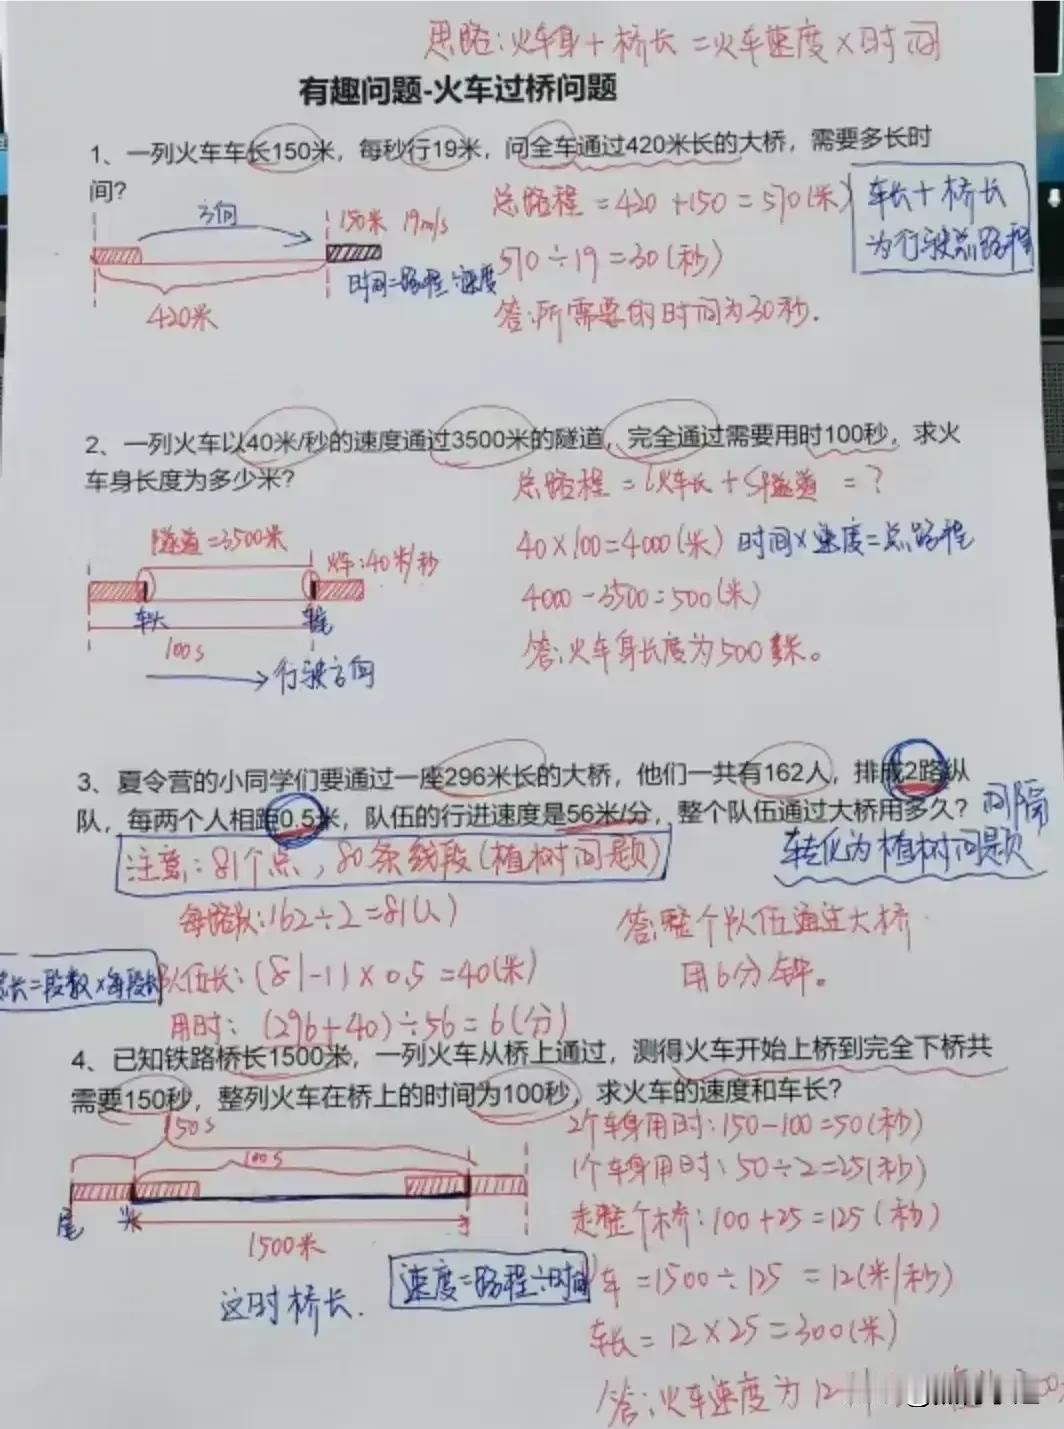 思路:火车身+桥长=火车速度×时间
有趣问题-火车过桥问题
1、一列火车车长150米，每秒行19米，问全车通过420米长的大桥，需要多长时
间?
总路程=420+150=570(米)
车长+桥长
为行驶总路程
方向
150米 19m/s
570÷19=30(秒)
时间=路程÷速度
420米
答:所需要的时间为30秒.
2、一列火车以40米/秒的速度通过3500米的隧道，完全通过需要用时100秒，求火
车身长度为多少米?
总路程=火车长+隧道=?
隧道=3500米
火车:40米/秒
40×100=4000(米) 时间×速度=总路程
4000-3500=500(米)
车头
车尾
100s
答:火车身长度为500米。
行驶方向
3、夏令营的小同学们要通过一座296米长的大桥，他们一共有162人，排成2路纵
队，每两个人相距0.5米，队伍的行进速度是56米/分，整个队伍通过大桥用多久?
间隔
注意:81个点,80条线段(植树问题)
转化为植树问题
每路队:162÷2=81(人)
答:整个队伍通过大桥
用6分钟。
总长=段数×每段长
队伍长:(81-1)×0.5=40(米)
用时:(296+40)÷56=6(分)
4、已知铁路桥长1500米，一列火车从桥上通过，测得火车开始上桥到完全下桥共
需要150秒，整列火车在桥上的时间为100秒，求火车的速度和车长?
150s
2个车身用时:150-100=50(秒)
100s
1个车身用时:50÷2=25(秒)
尾
头
走整个桥:100+25=125(秒)
1500米
速度=路程÷时间
V车=1500÷125=12(米/秒)
这时桥长.
车长=12×25=300(米)
答:火车速度为12